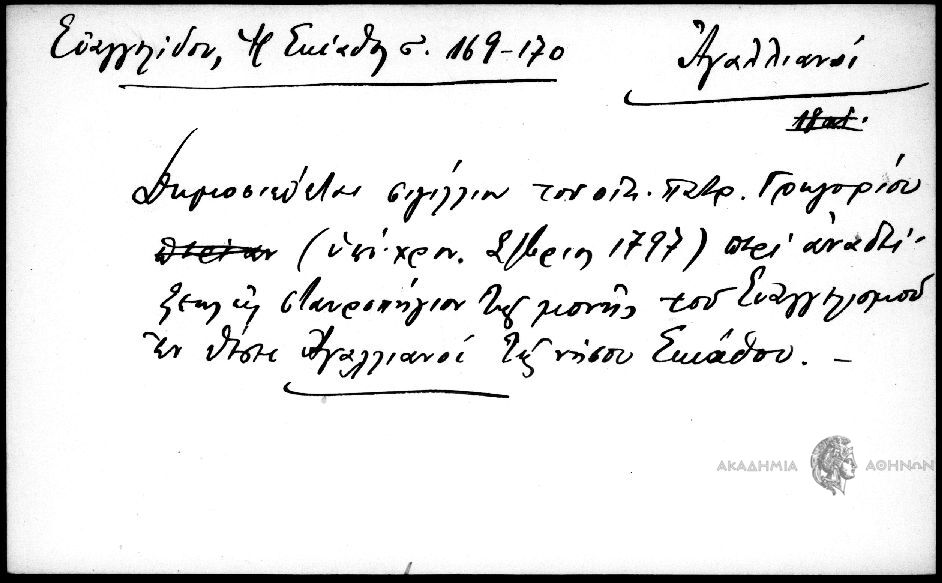 Εὐαγγελίδου, Ἡ Σκίαθος σ. 169-170
Ἀγαλλιανοί
Δημοσιεύεται σιγίλλιον τοῦ οἰκ. πατρ. Γρηγορίου
(ὑπὸ χρον. 1797) περὶ ἀναδεί-
ξεως εἰς σταυροπήγιον τῆς μονῆς τοῦ Εὐαγγελισμοῦ
ἐν θέσει Ἀγαλλιανοί τῆς νήσου Σκιάθου. —
ΑΚΑΔΗΜΙΑ ΑΘΗΝΩΝ